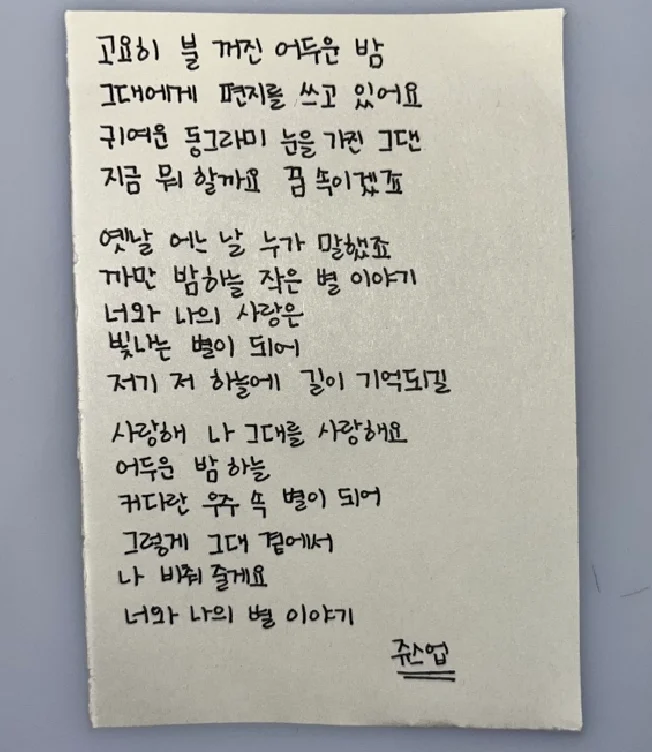 고요히 불 꺼진 어두운 밤
그대에게 편지를 쓰고 있어요
귀여운 동그라미 눈을 가진 그댄
지금 뭐 할까요 꿈 속이겠죠
옛날 어느 날 누가 말했죠
까만 밤하늘 작은 별 이야기
너와 나의 사랑은
빛나는 별이 되어
저기 저 하늘에 길이 기억되길
사랑해 나 그대를 사랑해요
어두운 밤 하늘
커다란 우주 속 별이 되어
그렇게 그대 곁에서
나 비춰 줄게요
너와 나의 별 이야기
쥬스업